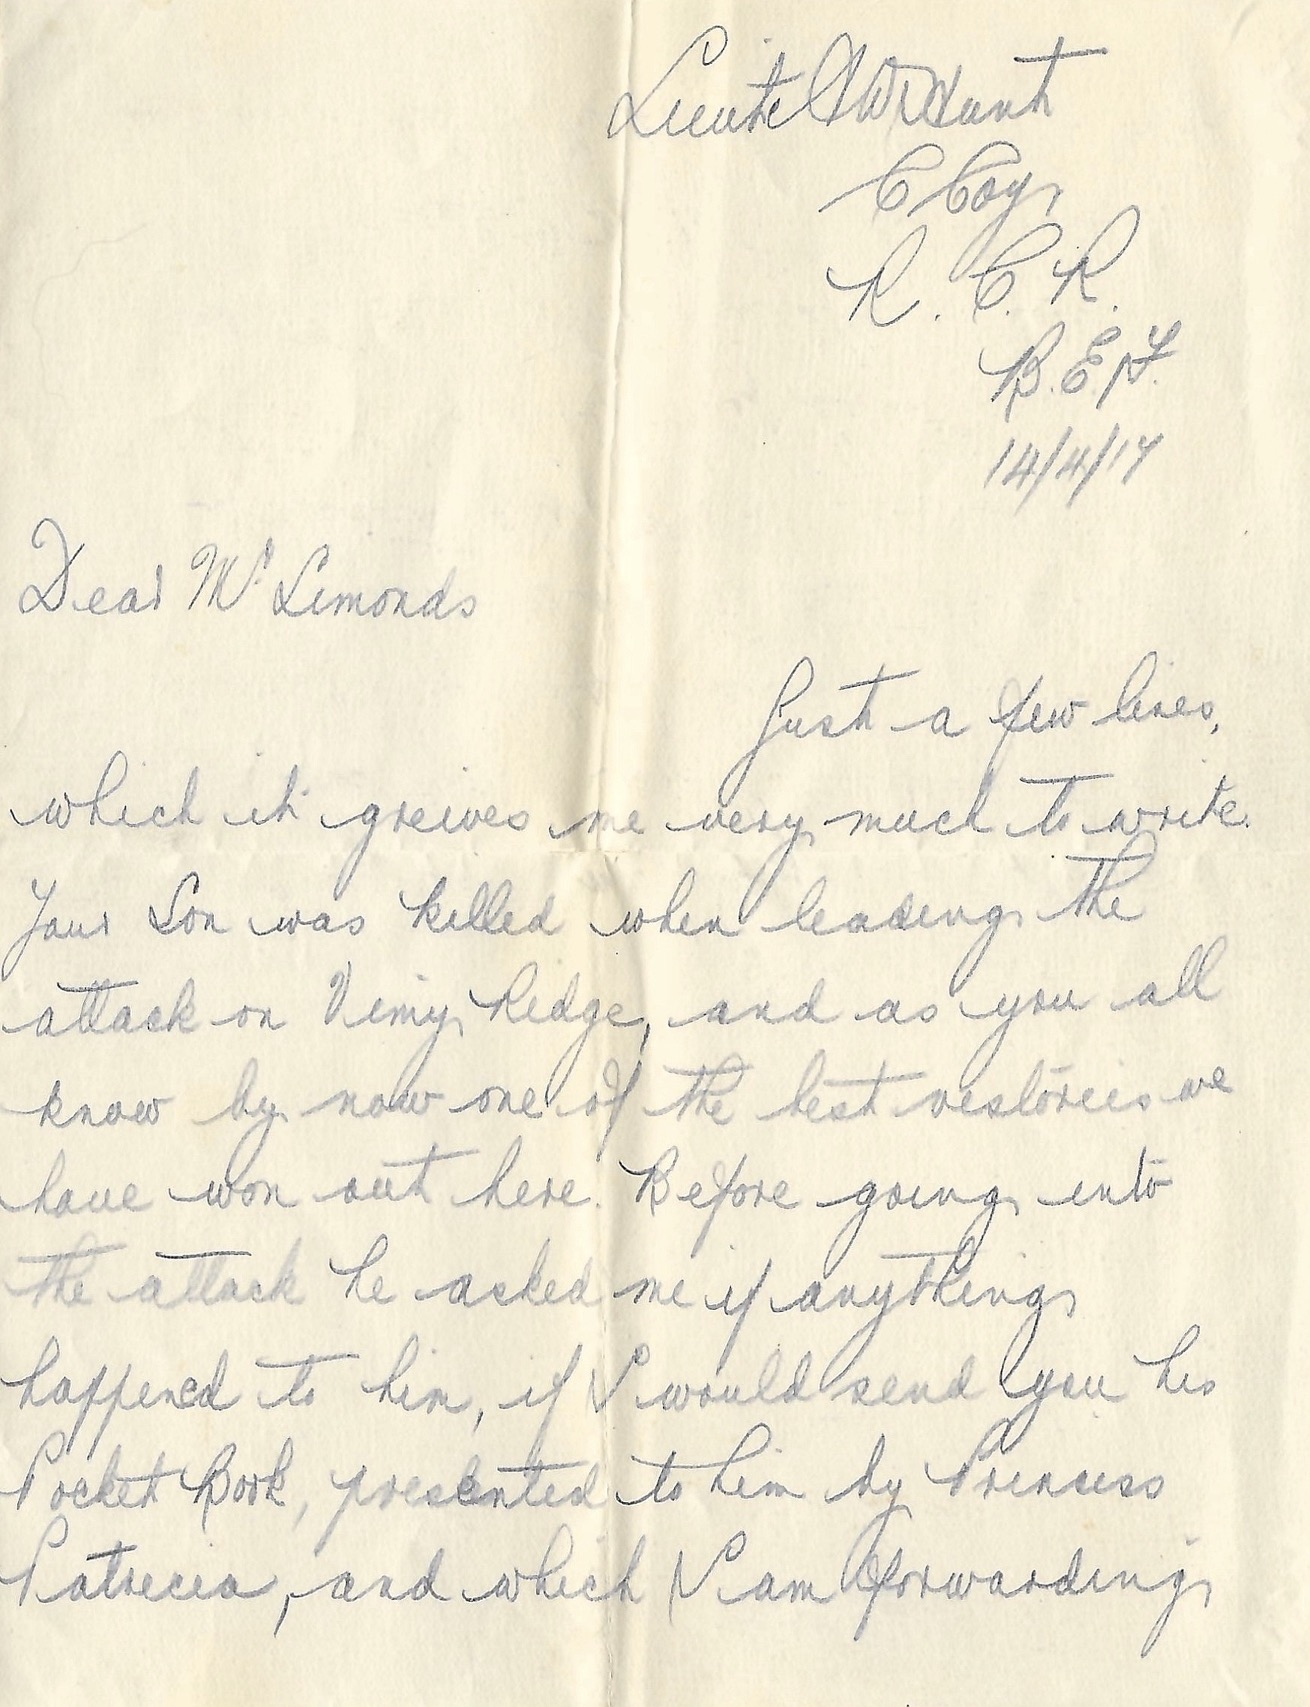 Lieut C W Hunt
C Coy,
R. C. R.
B. E. F.
14/4/17
Dear Mr Simonds
Just a few lines,
which it greives me very much to write.
Your Son was killed when leading the
attack on Vimy Ridge, and as you all
know by now one of the best victories we
have won out here. Before going into
the attack he asked me if anything
happened to him, if I would send you his
Pocket Book, presented to him by Princess
Patricia, and which I am forwarding